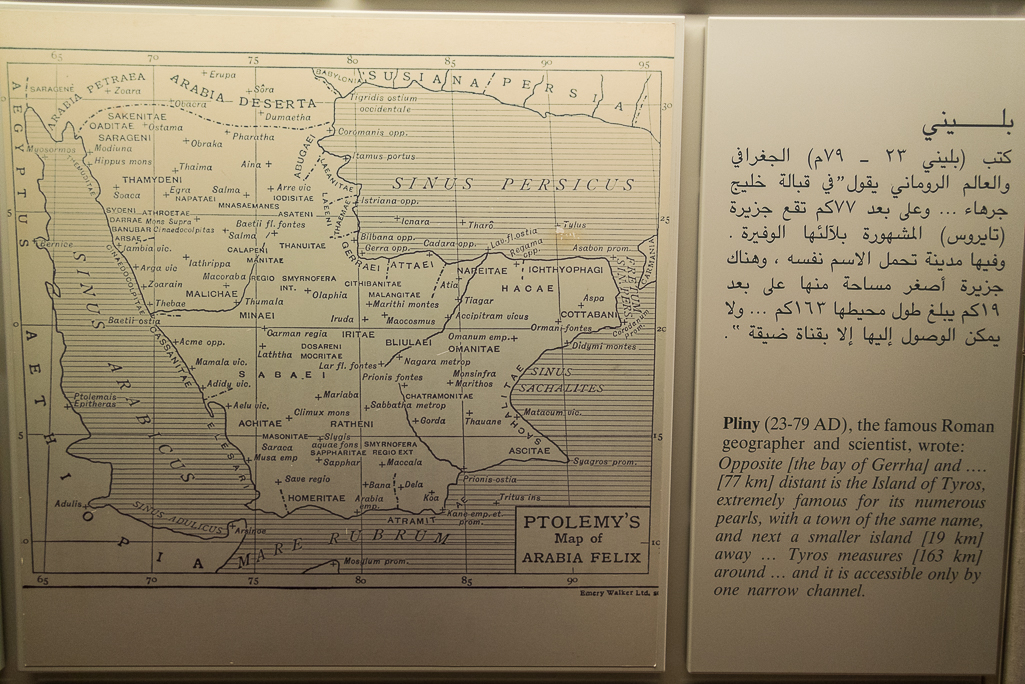 65 70 75 80 85 90 95
SARAGENE ARABIA PETRAEA
Zoara
Erupa
ARABIA DESERTA
Sôra
BABYLONIA SUSIANA PERSIA
Obaera
Dumaetha
Tigridis ostium
occidentale
30
SAKENITAE
OADITAE Ostama
SARAGENI
Modiuna
Hippus mons
Obraka
Pharatha
Coromanis opp.
Myosormos
THEMUDITAE
Thaima
Aina
ABUGAEI
Itamus portus
LAEANITAE
SINUS PERSICUS
THAMYDENI
Soaca
Egra
NAPATAEI
Salma
MNASAEMANES
Arre vic
IODISITAE
ASATENI
Istriana opp.
5
SYDENI ATHROETAE
DARRAE Mons Supra
BANUBARI Cinaedocolpitas
ARSAE
Iambia vic.
Baetii fl. fontes
Salma
CALAPENI
THANUITAE
Ichara
Tharô
Tylus
25
Bilbana opp.
Gerra opp.
Cadara opp.
Lar fl. ostia
Regama
opp.
Asabon prom.
CARMANIA
Bernice
Arga vic
Iathrippa
MANITAE
GERRAEI
ATTAEI
NAREITAE
ICHTHYOPHAGI
Zoarain
Macoraba
REGIO SMYRNOFERA
INT.
CITHIBANITAE
Atia
HACAE
Thebae
MALICHAE
Thumala
Olaphia
MALANGITAE
Marithi montes
Tiagar
Aspa
Baetii ostia
MINAEI
Iruda
Maocosmus
Accipitram vicus
COTTABANI
Orman fontes
CINAEDOCOLPITAE
CASSANITAE
Acme opp.
Carman regia
IRITAE
BLIULAEI
Omanum emp.
OMANITAE
Didymi montes
20
Laththa
DOSARENI
MOCRITAE
Mamala vic.
Lar fl. fontes
Nagara metrop
SABAEI
Prionis fontes
Monsinfra
Marithos
SINUS
SACHALITES
Adidy vic.
Mariaba
CHATRAMONITAE
Ptolemais
Epitheras
Aelu vic.
Climux mons
Sabbatha metrop
Thauane
Matacum vic.
SACHALITAE
ACHITAE
RATHENI
Gorda
5
MASONITAE
Slygis
aquae fons
SAPPHARITAE
SMYRNOFERA
REGIO EXT
15
Saraca
Musa emp
Sapphar
Maccala
ASCITAE
Syagros prom.
ELESARI
Save regio
Bana
Dela
Prionis ostia
HOMERITAE
Arabia
emp.
Koa
Tritus ins
Adulis
SINUS ADULICUS
Arsinoe
ATRAMIT
AE
Kane emp. et.
prom.
AEGYPTUS
AETHIOPIA
SINUS ARABICUS
MARE RUBRUM
Mosylum prom.
PTOLEMY'S
Map of
ARABIA FELIX
0 10
65 70 75 80 85 90
Emery Walker Ltd.
بلـــــيني
كتب (بليني ٢٣ - ٧٩م) الجغرافي
والعالم الروماني يقول "في قبالة خليج
جرهاء ... وعلى بعد ٧٧كم تقع جزيرة
(تايروس) المشهورة بلآلئها الوفيرة .
وفيها مدينة تحمل الاسم نفسه ، وهناك
جزيرة أصغر مساحة منها على بعد
١٩كم يبلغ طول محيطها ١٦٣كم ... ولا
يمكن الوصول إليها إلا بقناة ضيقة " .
Pliny (23-79 AD), the famous Roman
geographer and scientist, wrote:
Opposite [the bay of Gerrha] and ....
[77 km] distant is the Island of Tyros,
extremely famous for its numerous
pearls, with a town of the same name,
and next a smaller island [19 km]
away ... Tyros measures [163 km]
around ... and it is accessible only by
one narrow channel.